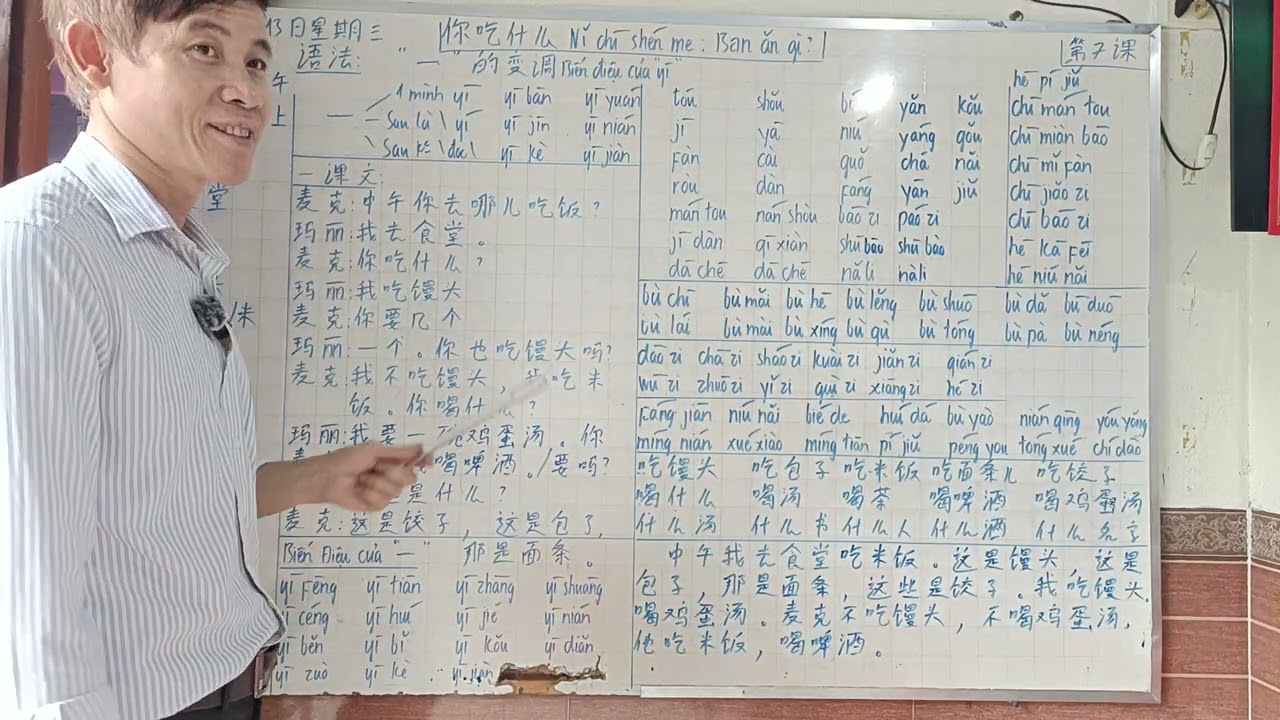 13日星期三
你吃什么 Nǐ chī shén me : Bạn ăn gì?
第7课
语法: "一"的变调 Biến điệu của "yī"
午
上
一 1 mình yī yī bān yī yuán
Sau là \ yí yī jīn yī nián
Sau là \ đa\ yī kè yī jiàn
一 课文:
麦克:中午你去哪儿吃饭?
玛丽:我去食堂。
麦克:你吃什么?
玛丽:我吃馒头
麦克:你要几个
玛丽:一个。你也吃馒头吗?
麦克:我不吃馒头, 我吃米
饭。你喝什么?
玛丽:我要一 鸡蛋汤。你
喝啤酒。/要吗?
是什么?
麦克:这是饺子, 这是包子,
那是面条。
堂
/米
Biến Điệu của "一"
yī fēng yī tiān yī zhāng yī shuāng
yī céng yī huí yī jié yī nián
yī běn yī bǐ yī kǒu yī diǎn
yī zuò yī kè yī jiàn
tóu shǒu yǎn kǒu
jī yā niú yáng gǒu
fàn cài guǒ chá nǎi
ròu dàn fáng yān jiǔ
mán tou nán shòu bāo zi páo zi
jī dàn qī xiàn shū bāo shū bāo
dǎ chē dà chē nǎ li nà li
hē pí jiǔ
chī mán tou
chī miàn bāo
chī mǐ fàn
chī jiǎo zi
chī bāo zi
hē kā fēi
hē niú nǎi
bù chī bù mǎi bù hē bù lěng bù shuō bù dǎ bù duō
bù lái bù mài bù xíng bù qù bù tóng bù pà bù néng
dāo zi chā zi sháo zi kuài zi jiǎn zi qián zi
wū zi zhuō zi yǐ zi guì zi xiāng zi hé zi
fáng jiān niú nǎi bié de huí dá bù yào nián qīng yóu yǒng
míng nián xué xiào míng tiān pí jiǔ péng you tóng xué chí dào
吃馒头 吃包子 吃米饭 吃面条儿 吃饺子
喝什么 喝汤 喝茶 喝啤酒 喝鸡蛋汤
什么汤 什么书 什么人 什么酒 什么名字
中午我去食堂吃米饭。这是馒头, 这是
包子, 那是面条, 这些是饺子。我吃馒头,
喝鸡蛋汤。麦克不吃馒头, 不喝鸡蛋汤,
他吃米饭, 喝啤酒。